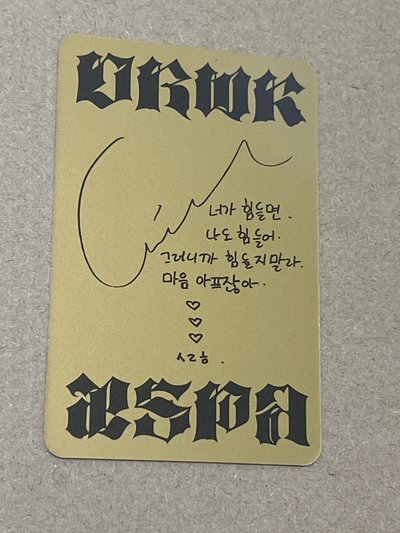 DRWK
너가 힘들면.
나도 힘들어.
그러니까 힘들지말라.
마음 아프잖아.
♡
♡
♡
ㅅㄹㅎ.
æspa